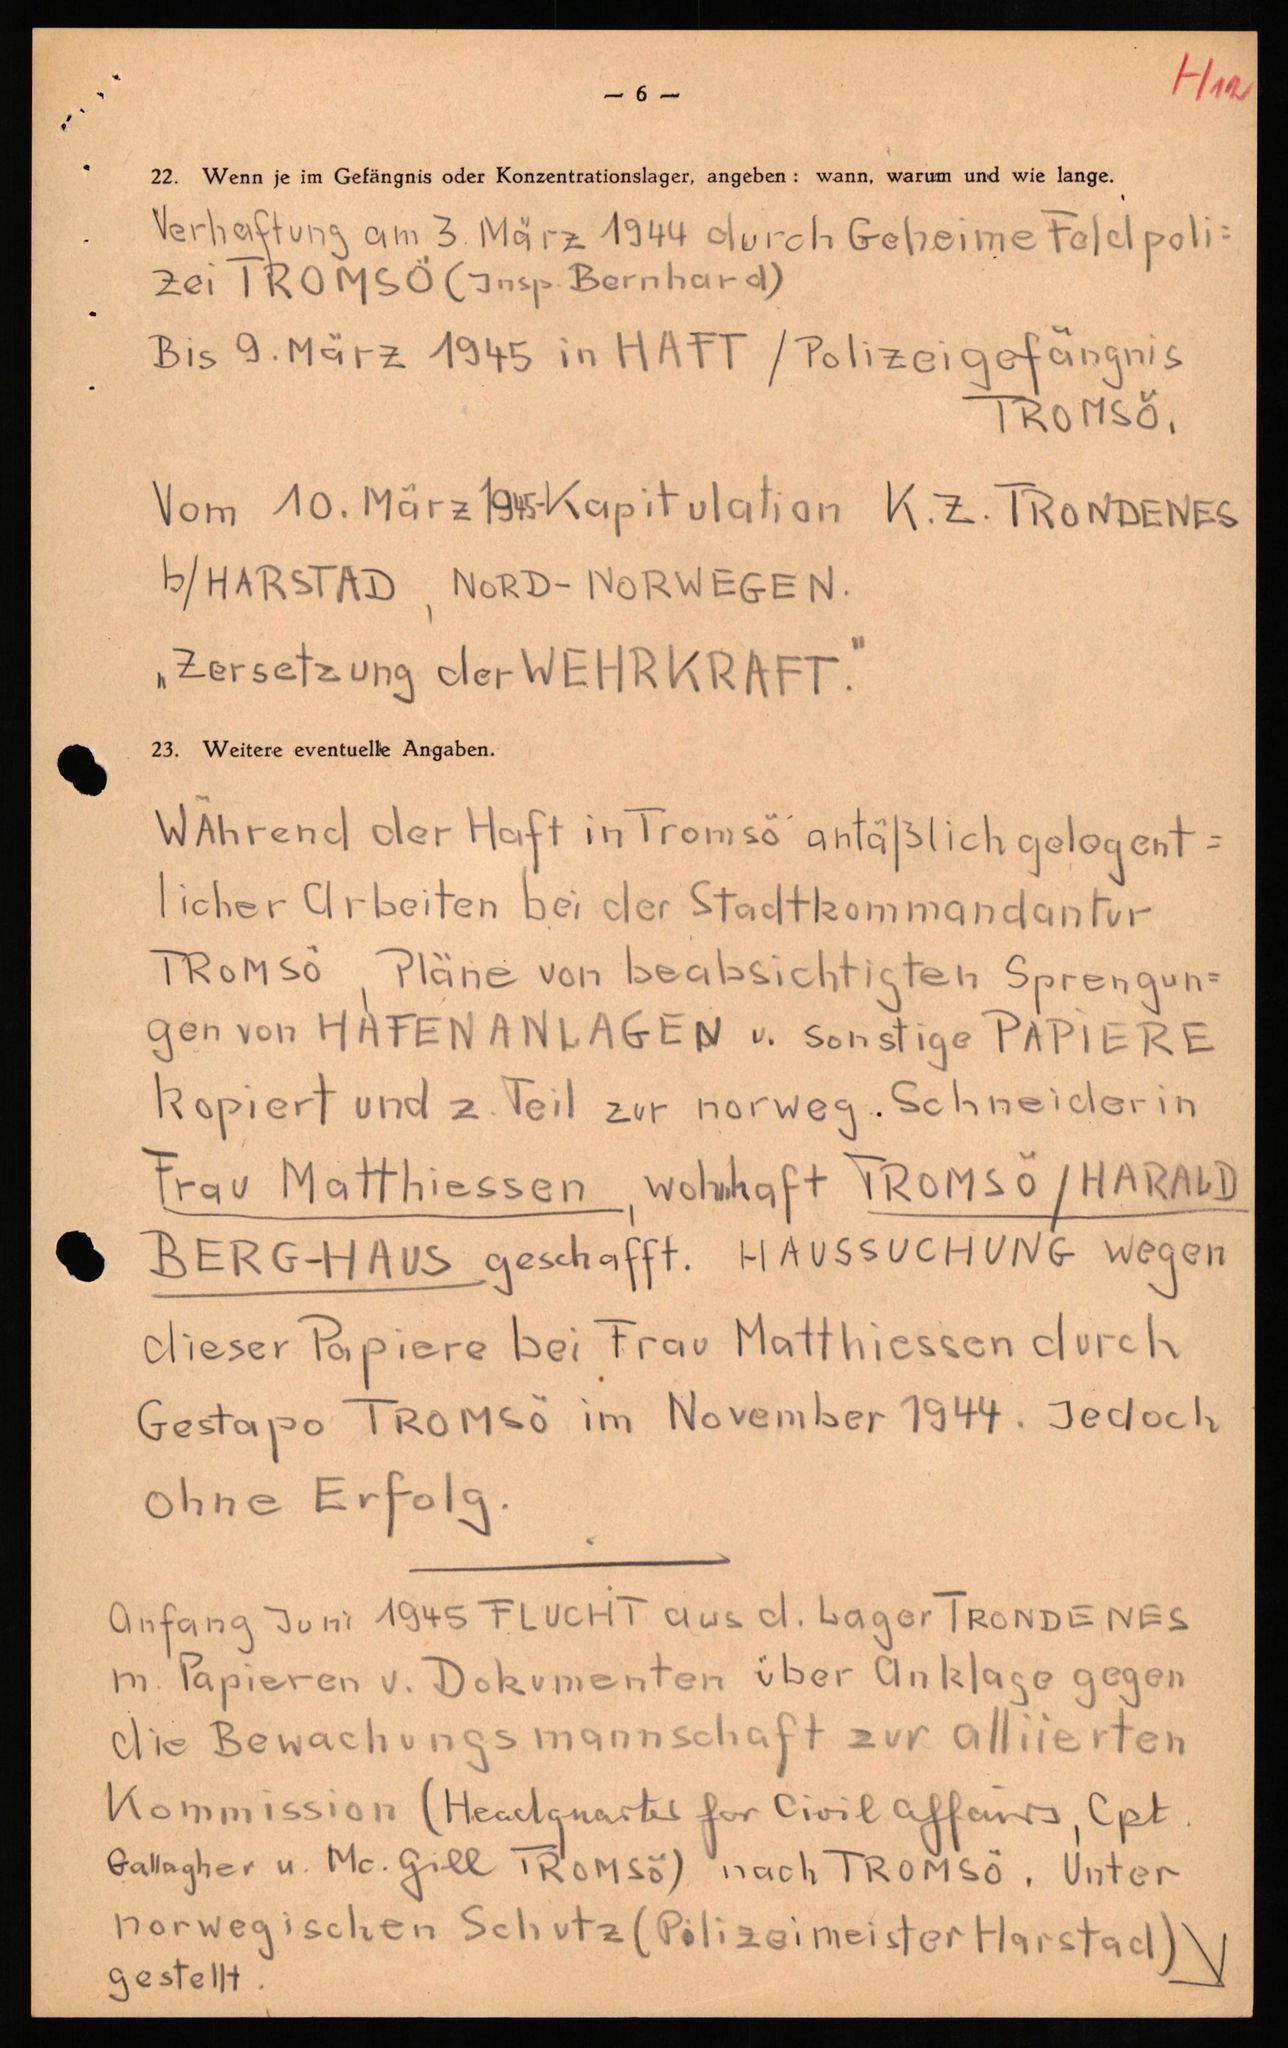 H12
— 6 —
22. Wenn je im Gefängnis oder Konzentrationslager, angeben: wann, warum und wie lange.
Verhaftung am 3. März 1944 durch Geheime Feldpoli=
zei TROMSÖ (Insp. Bernhard)
Bis 9. März 1945 in HAFT / Polizeigefängnis
TROMSÖ.
Vom 10. März 1945-Kapitulation K.Z. TRONDENES
b/HARSTAD, NORD-NORWEGEN.
„Zersetzung der WEHRKRAFT."
23. Weitere eventuelle Angaben.
WÄhrend der Haft in Tromsö anläßlich gelegent=
licher Arbeiten bei der Stadtkommandantur
TROMSÖ, Pläne von beabsichtigten Sprengun=
gen von HAFENANLAGEN u. sonstige PAPIERE
kopiert und z. Teil zur norweg. Schneiderin
Frau Matthiessen, wohnhaft TROMSÖ/HARALD
BERG-HAUS geschafft. HAUSSUCHUNG wegen
dieser Papiere bei Frau Matthiessen durch
Gestapo TROMSÖ im November 1944. Jedoch
ohne Erfolg.
Anfang Juni 1945 FLUCHT aus d. Lager TRONDENES
m. Papieren u. Dokumenten über Anklage gegen
die Bewachungsmannschaft zur alliierten
Kommission (Headquarter for Civil affairs, Cpt.
Gallagher u. Mc. Gill TROMSÖ) nach TROMSÖ. Unter
norwegischen Schutz (Polizeimeister Harstad)
gestellt.